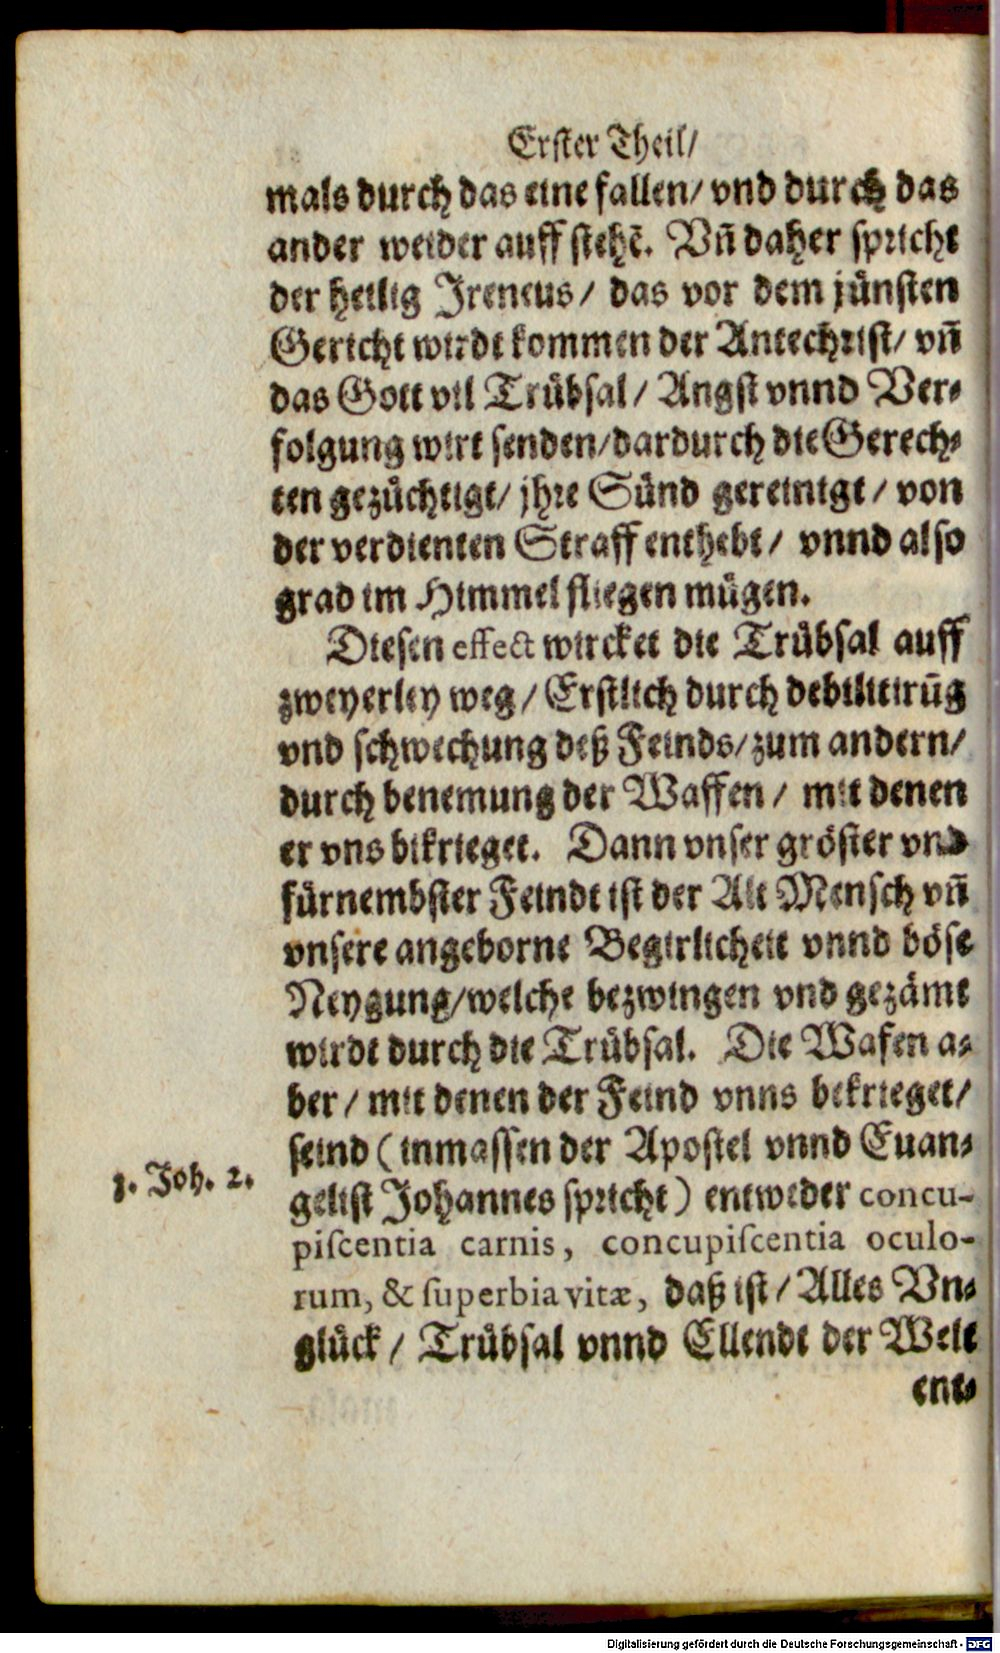 Erster Theil/
mals durch das eine fallen/ vnd durch das
ander weider auff stehē. Vñ daher spricht
der heilig Jreneus/ das vor dem jünsten
Gericht wirdt kommen der Antechrist/ vñ
das Gott vil Trübsal/ Angst vnnd Ver-
folgung wirt senden/dardurch die Gerech-
ten gezüchtigt/ jhre Sünd gereinigt/ von
der verdienten Straff enthebt/ vnnd also
grad im Himmel fliegen mügen.
Diesen effect wircket die Trübsal auff
zweyerley weg/ Erstlich durch debilitirūg
vnd schwechung deß Feinds/zum andern/
durch benemung der Waffen/ mit denen
er vns bikrieget. Dann vnser gröster vnd
fürnembster Feindt ist der Alt Mensch vñ
vnsere angeborne Begirlicheit vnnd böse
Neygung/welche bezwingen vnd gezämt
wirdt durch die Trübsal. Die Wafen a-
ber/ mit denen der Feind vnns bekrieget/
seind (inmassen der Apostel vnnd Euan-
1. Joh. 2.
gelist Johannes spricht) entweder concu-
piſcentia carnis, concupiſcentia oculo-
rum, & ſuperbia vitæ, daß ist/ Alles Vn-
glück/ Trübsal vnnd Ellendt der Welt
ent-
Digitalisierung gefördert durch die Deutsche Forschungsgemeinschaft - DFG